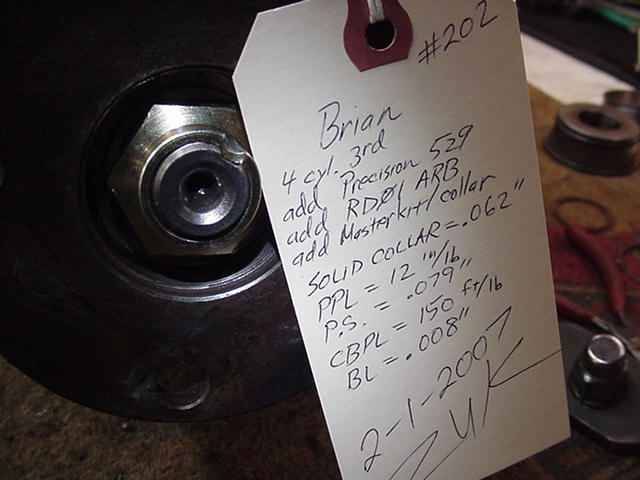 #202
Brian
4 cyl. 3rd
add Precision 529
add RDØ1 ARB
add Masterkit/collar
SOLID COLLAR = .062"
PPL = 12 in/lb
P.S. = .079"
CBPL = 150 ft/lb
BL = .008"
2-1-2007
ZUK